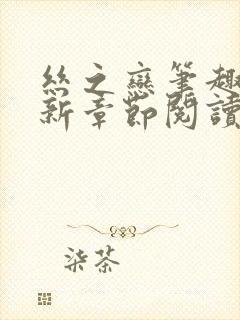 丝之戀筆趣
新章節閱讀
柒茶